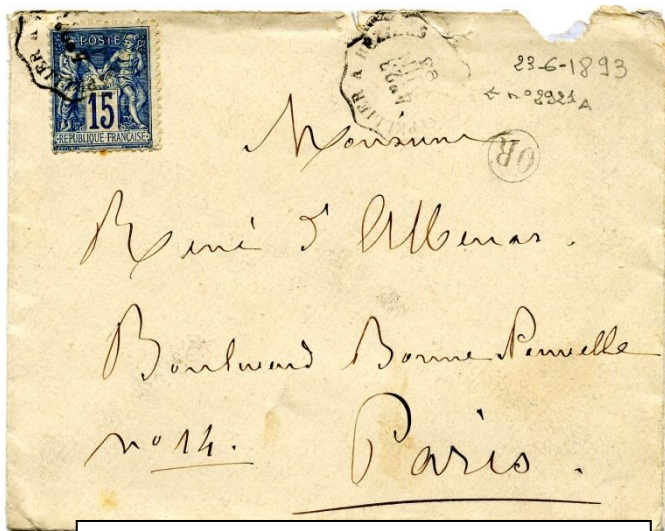 POSTE
15
REPUBLIQUE FRANÇAISE
A BEZIERS
23
93
23-6-1893
n° 8921 A
OR
Monsieur
René d'Albenas.
Boulevard Bonne Nouvelle
n° 14.
Paris.